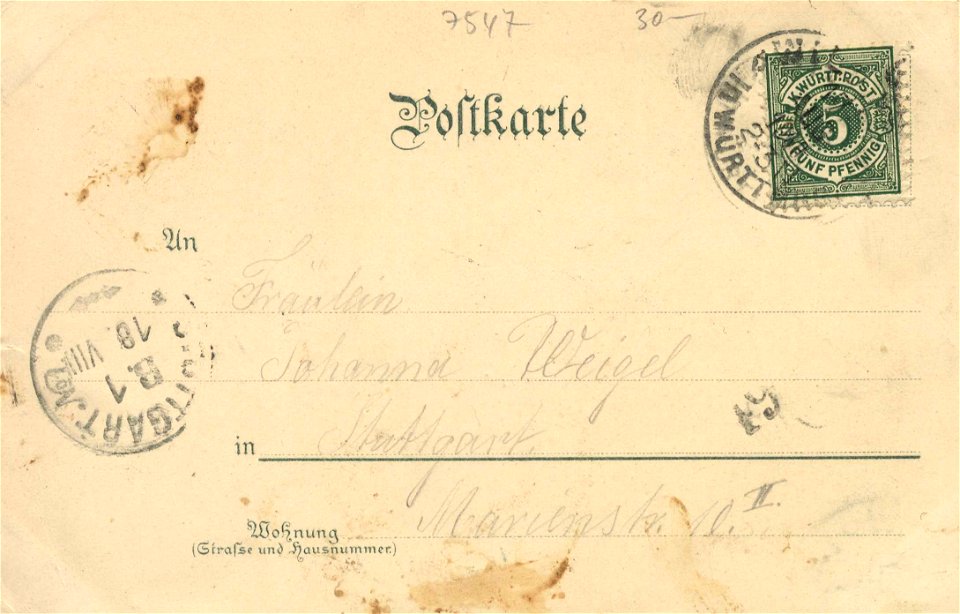 7547 30-
Postkarte
K. WÜRTT. POST
5
FÜNF PFENNIG
An
Fräulein
Johanna Weigel
in Stuttgart.
Marienstr. 10. II
Wohnung
(Straße und Hausnummer.)
STUTTGART. No 1
B. 1
18. VIII